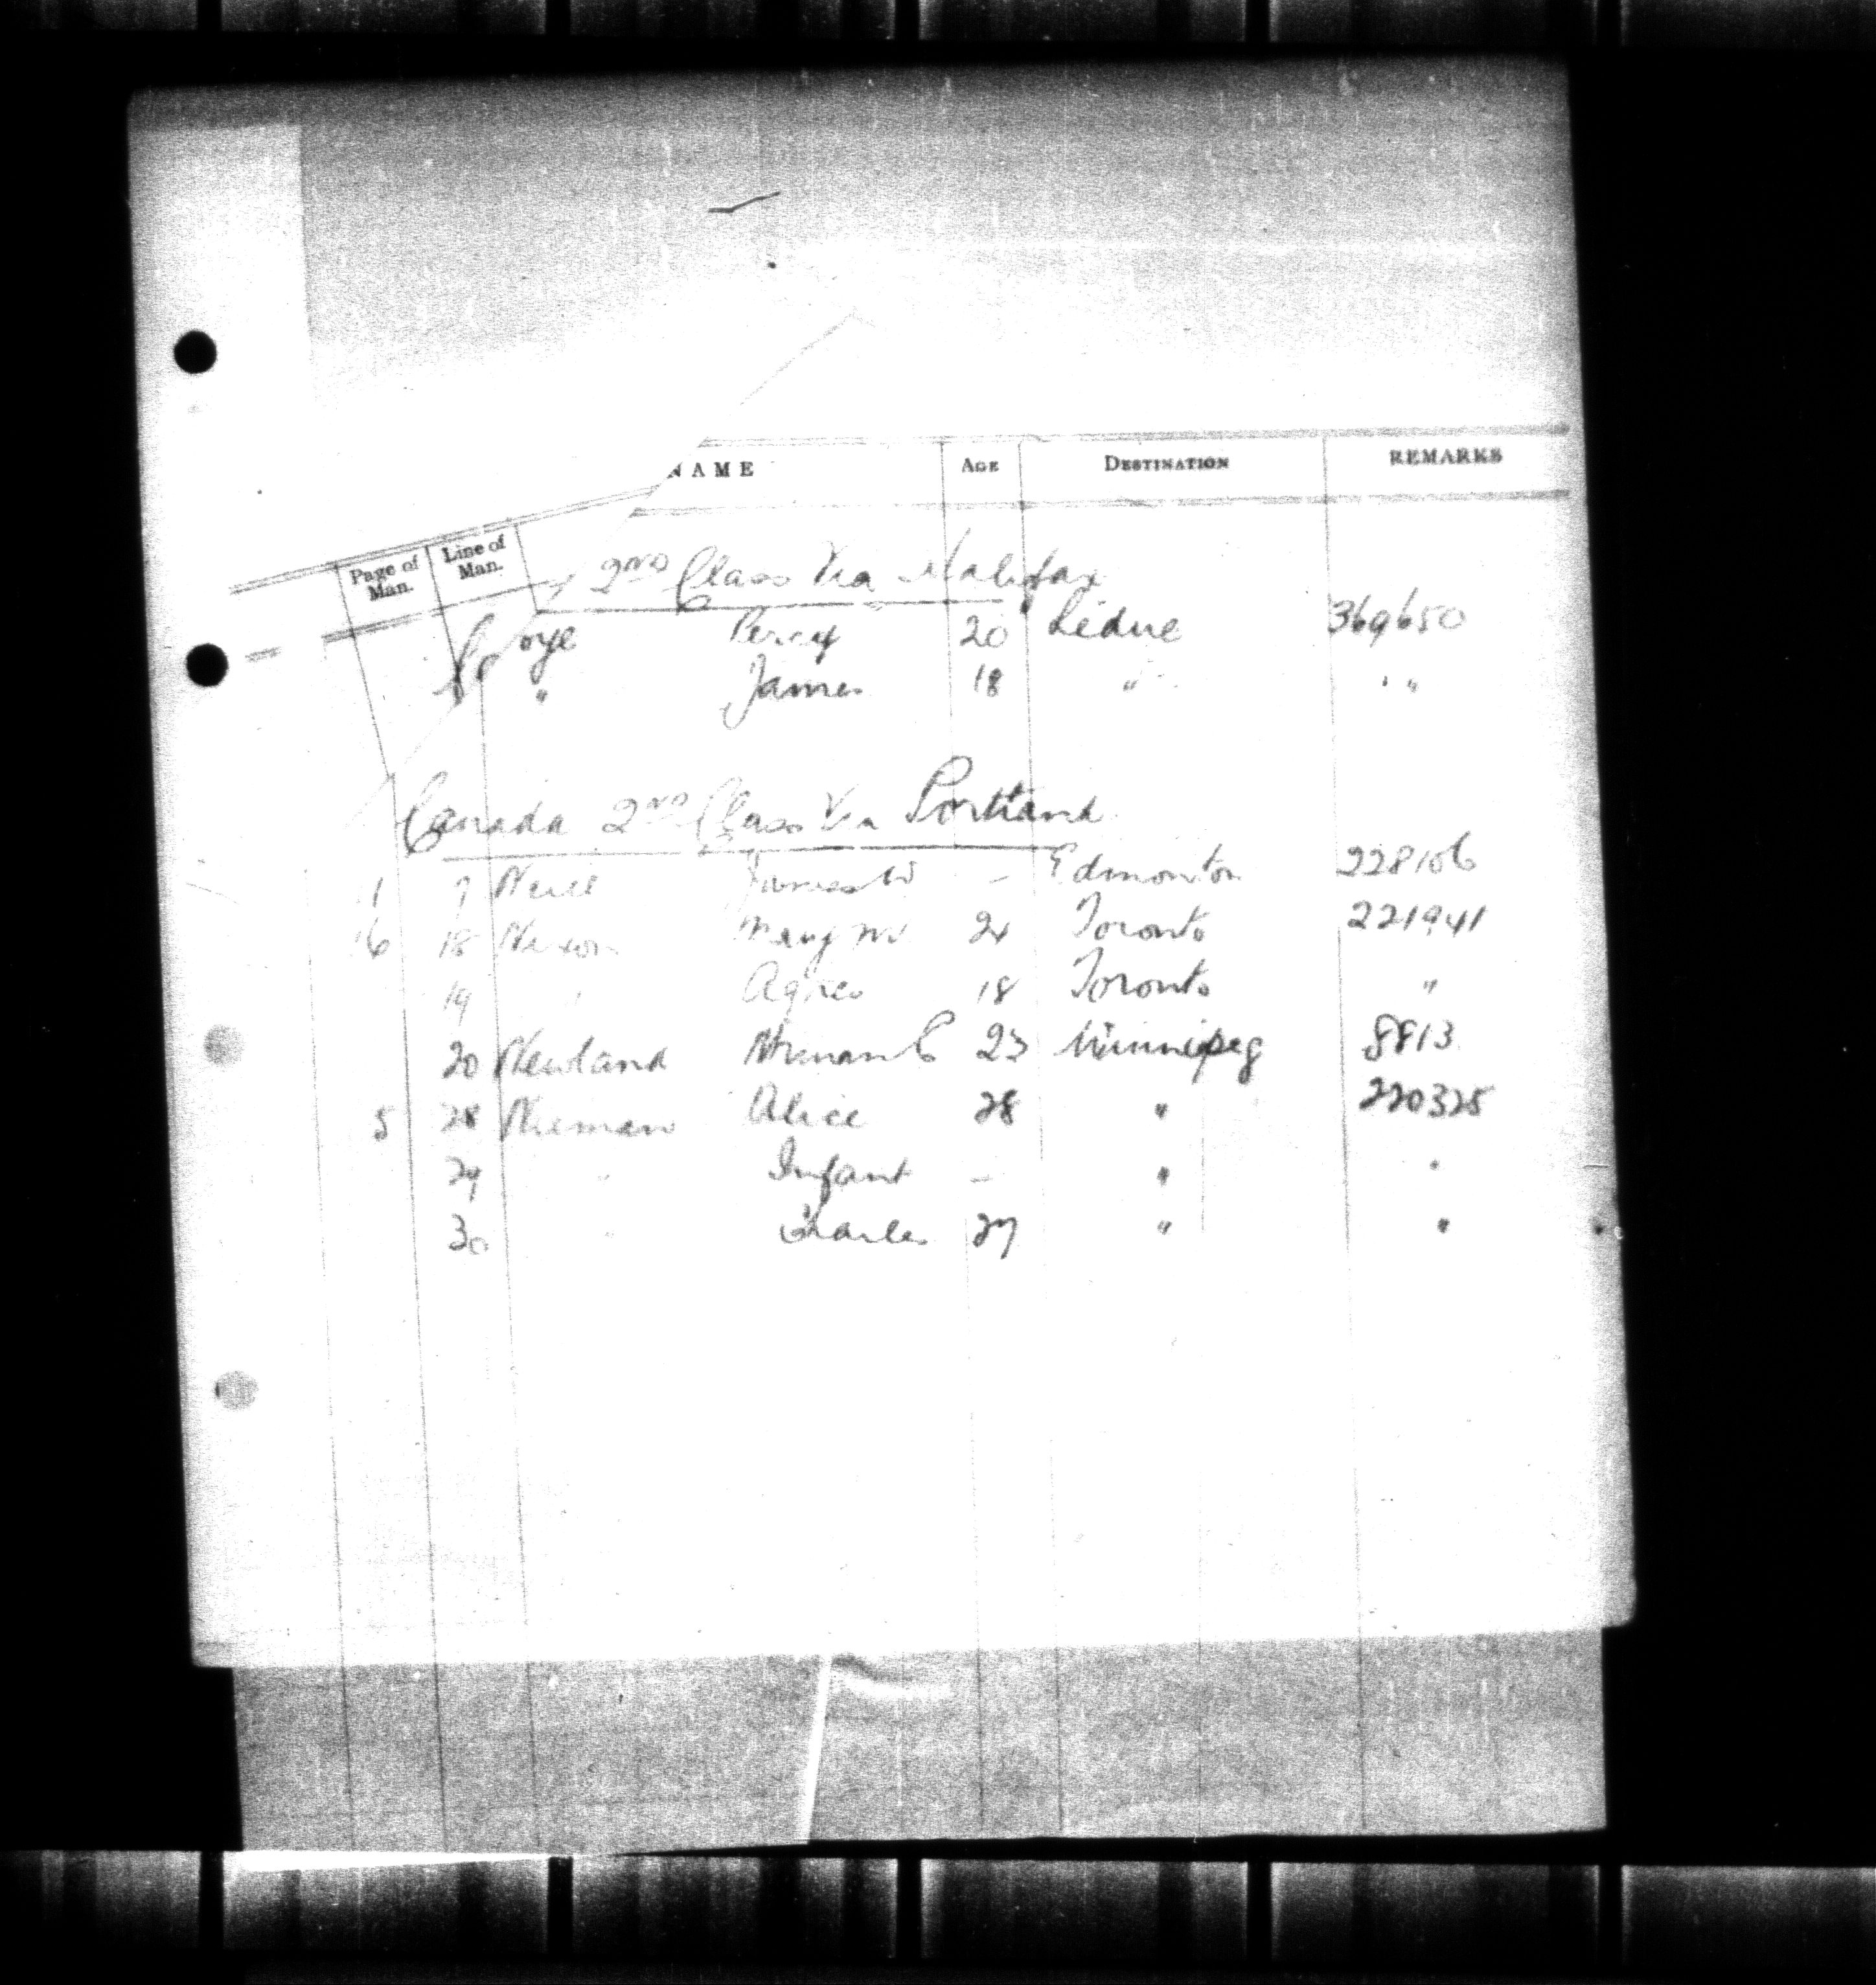 NAME AGE DESTINATION REMARKS
Page of Man. Line of Man.
2ND Class Via Halifax
oye Percy 20 Leduc 369650
" James 18 " "
Canada 2ND Class Via Portland
1 7 Neill James W - Edmonton 228106
16 18 Nixon Mary M 24 Toronto 221941
19 " Agnes 18 Toronto "
20 Newland 23 Winnipeg 8813
5 28 Nieman Alice 28 " 220325
29 " Infant - " "
30 " Charles 27 " "